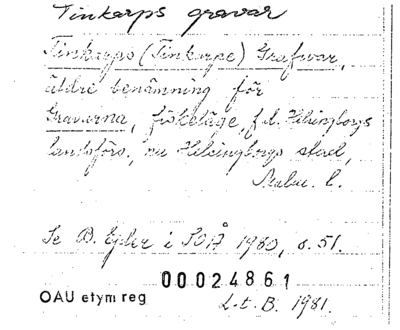 Tinkarps gravar
Tinkarps (Tinkarpe) Grafwar,
äldre benämning för
Graverna, fiskeläge, f.d. Helsingborgs
landsförs., nu Helsingborgs stad,
Malm. l.
Se B. Ejder i SOÅ 1980, s. 51.
00024861
OAU etym reg
L.t. B. 1981.